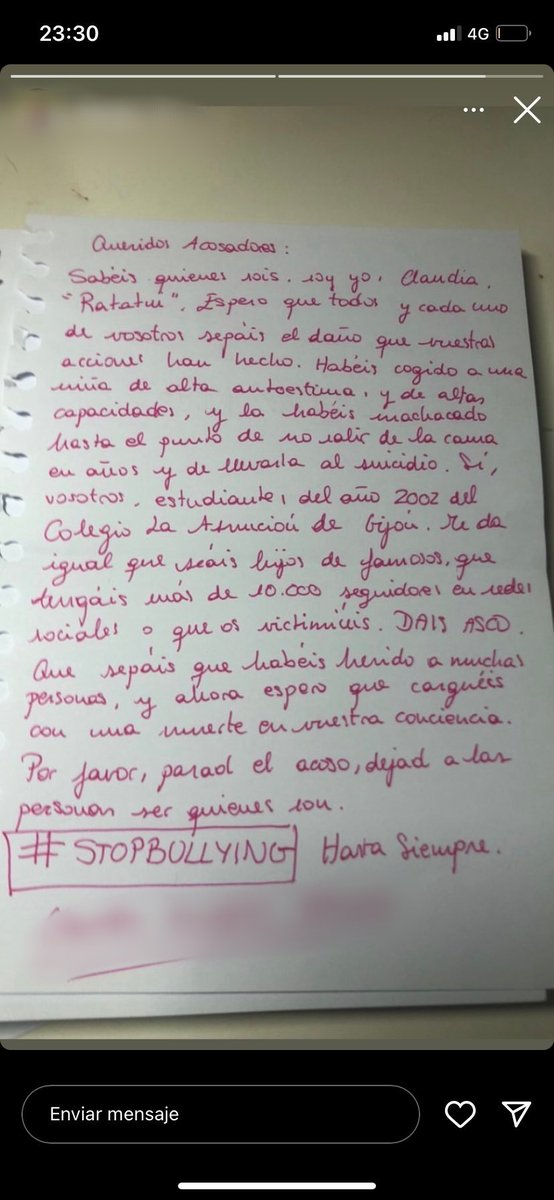 23:30
4G
Queridos Acosadores:
Sabéis quienes sois, soy yo, Claudia,
"Ratatui". Espero que todos y cada uno
de vosotros sepáis el daño que vuestras
acciones han hecho. Habéis cogido a una
niña de alta autoestima, y de altas
capacidades, y la habéis machacado
hasta el punto de no salir de la cama
en años y de llevarla al suicidio. Sí,
vosotros, estudiantes del año 2002 del
Colegio La Asunción de Gijón. Me da
igual que seáis hijos de famosos, que
tengáis más de 10.000 seguidores en redes
sociales o que os victimicéis. DAIS ASCO.
Que sepáis que habéis herido a muchas
personas, y ahora espero que carguéis
con una muerte en vuestra conciencia.
Por favor, parad el acoso, dejad a las
personas ser quienes son.
#STOPBULLYING Hasta Siempre.
Enviar mensaje